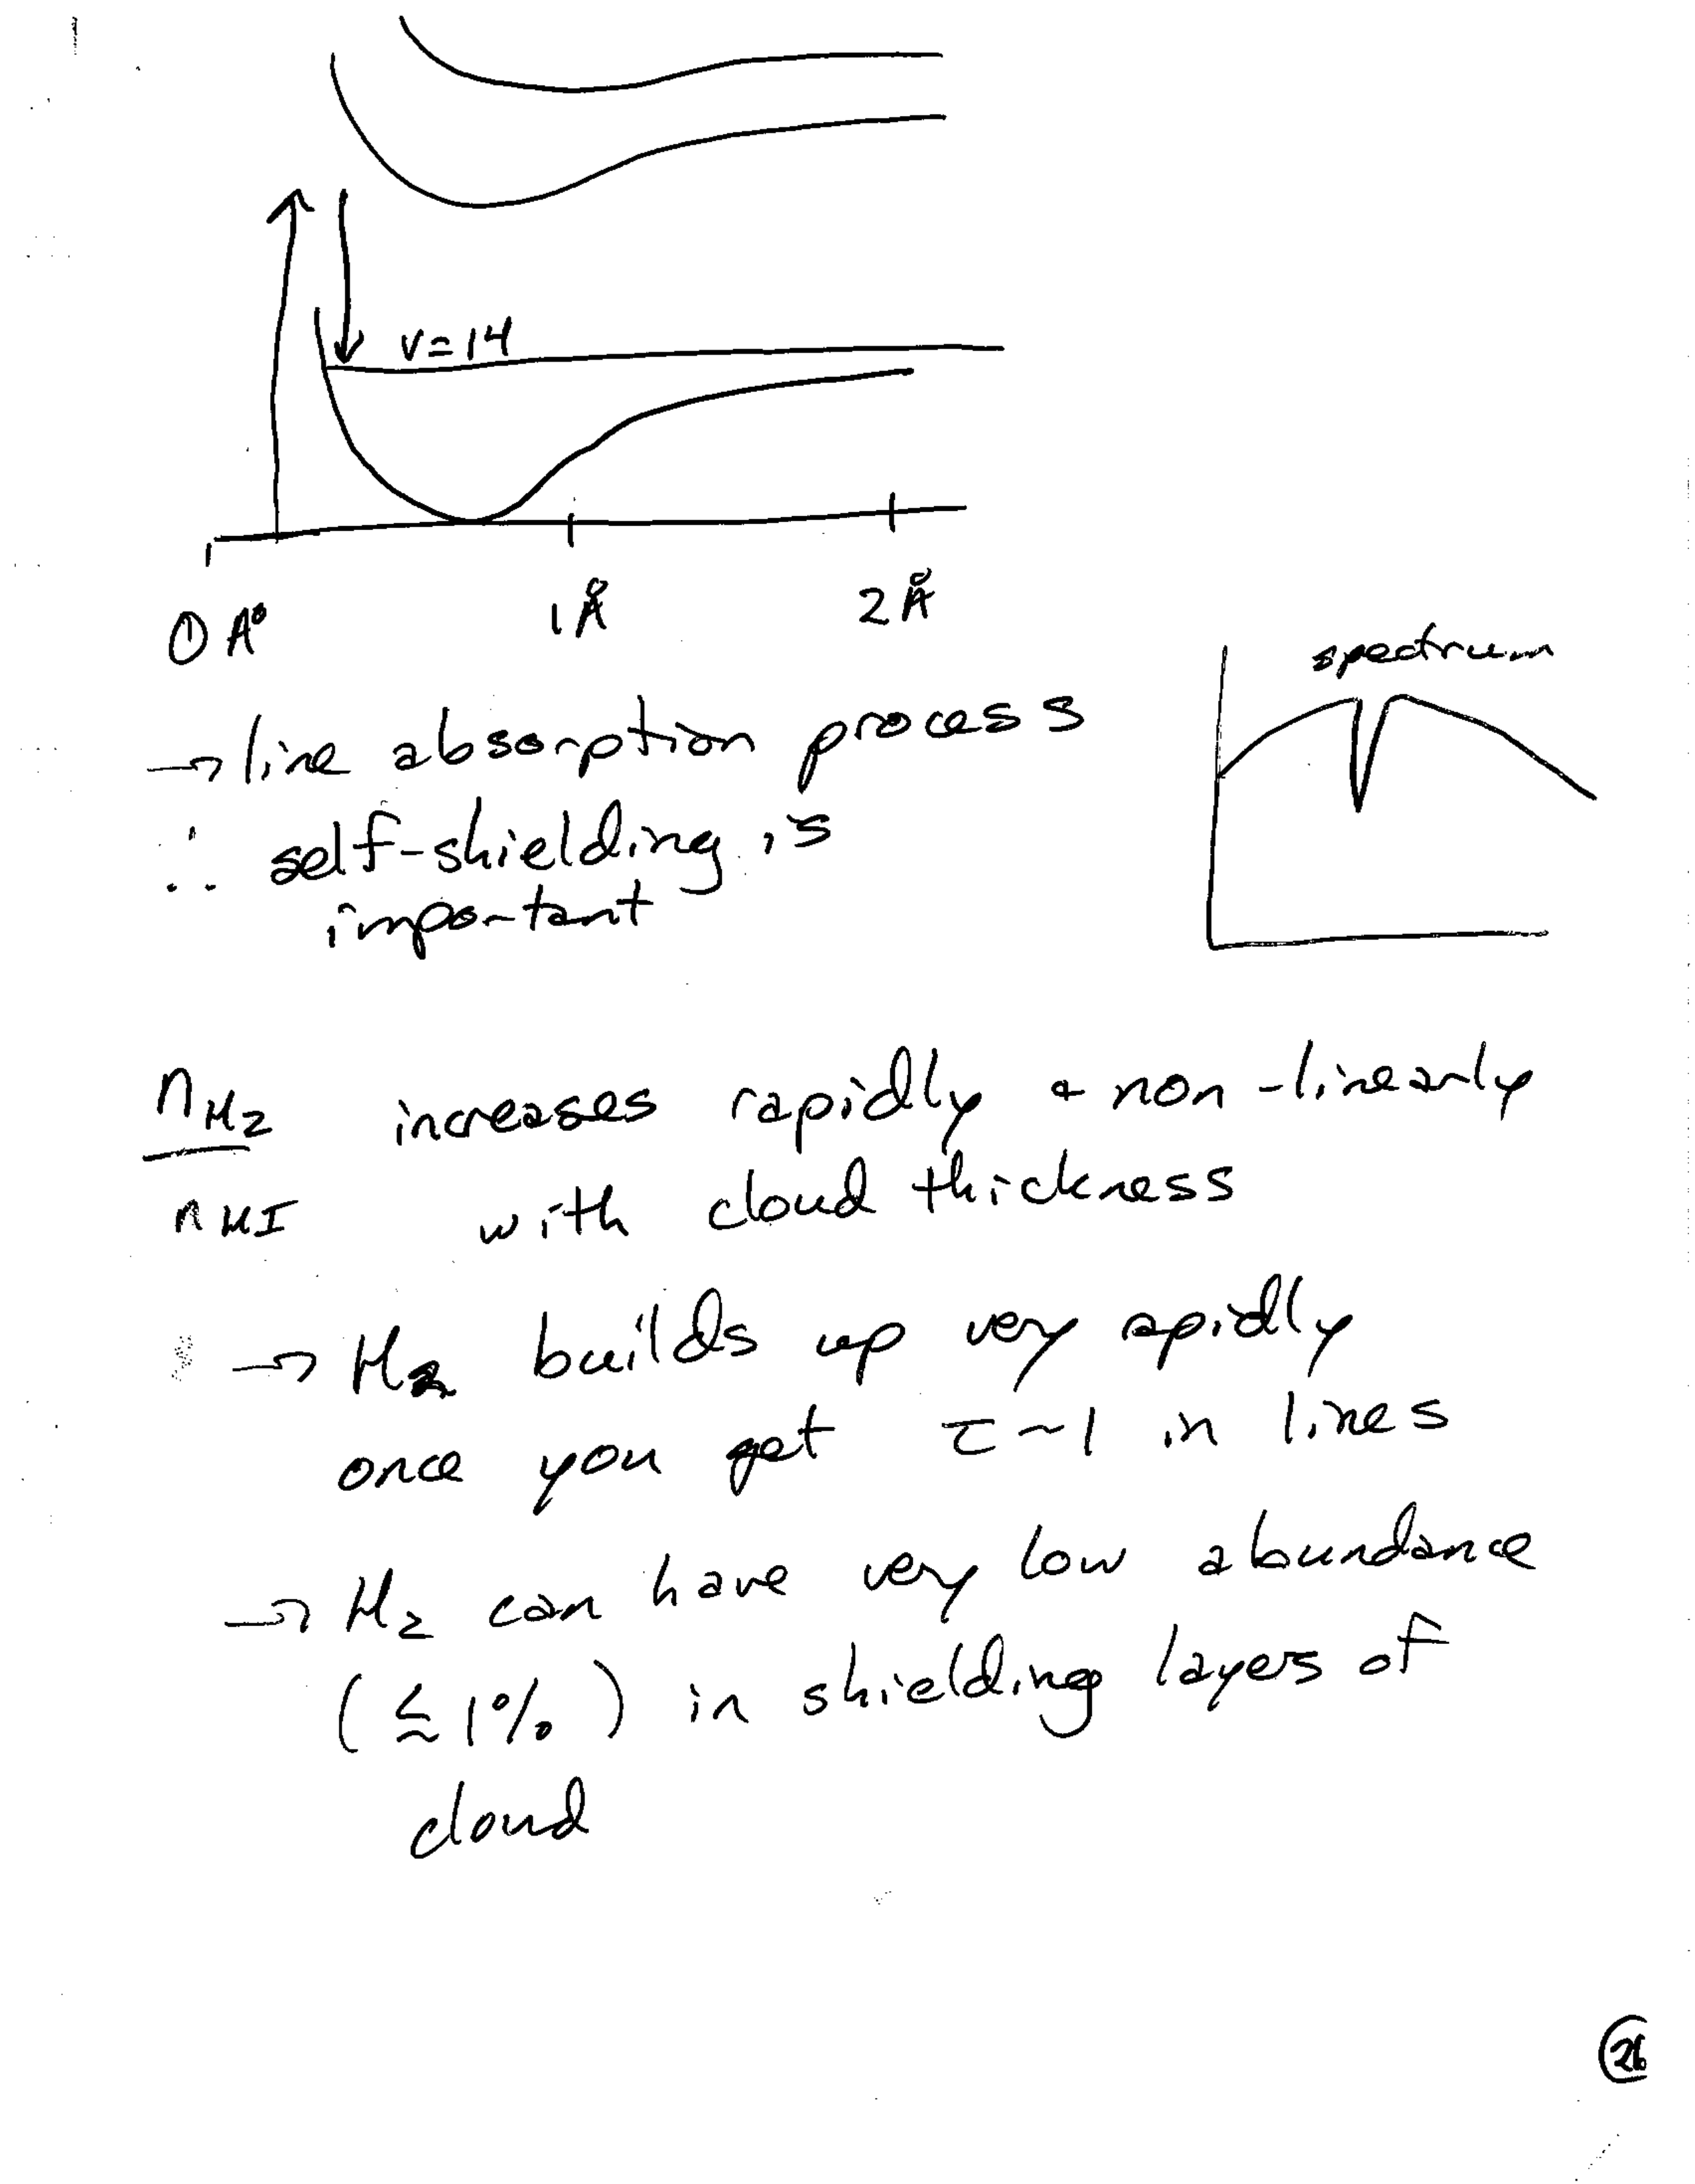 v=14
0 Å
1 Å
2 Å
spectrum
→ line absorption process
∴ self-shielding is
important
nH2 increases rapidly & non-linearly
nHI with cloud thickness
→ H2 builds up very rapidly
once you get τ~1 in lines
→ H2 can have very low abundance
(≲1%) in shielding layers of
cloud
26